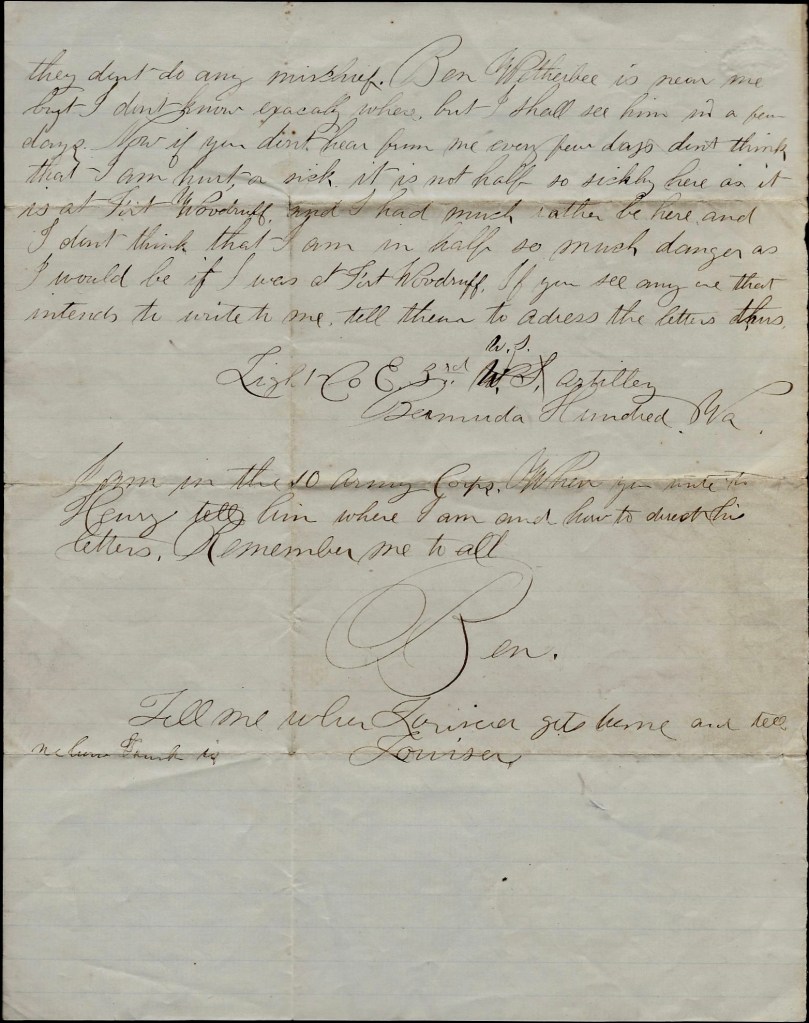 they dont do any mischief. Ben Witherbee is near me
but I dont know exacally where, but I shall see him in a few
days. Now if you dont hear from me every few days dont think
that I am hurt, or sick. it is not half so sickly here as it
is at Fort Woodruff. and I had much rather be here and
I dont think that I am in half so much danger as
I would be if I was at Fort Woodruff. If you see any one that
intends to write to me, tell them to adress the letters thus.
U. S.
Light Co E. 3rd. U. S. Artilley
Bermuda Hundred Va.
I am in the 10 Army Corps. When you write to
Henry tell him where I am and how to direct his
letters. Remember me to all
Ben.
Tell me when gets home and tell
me how is
Louiser